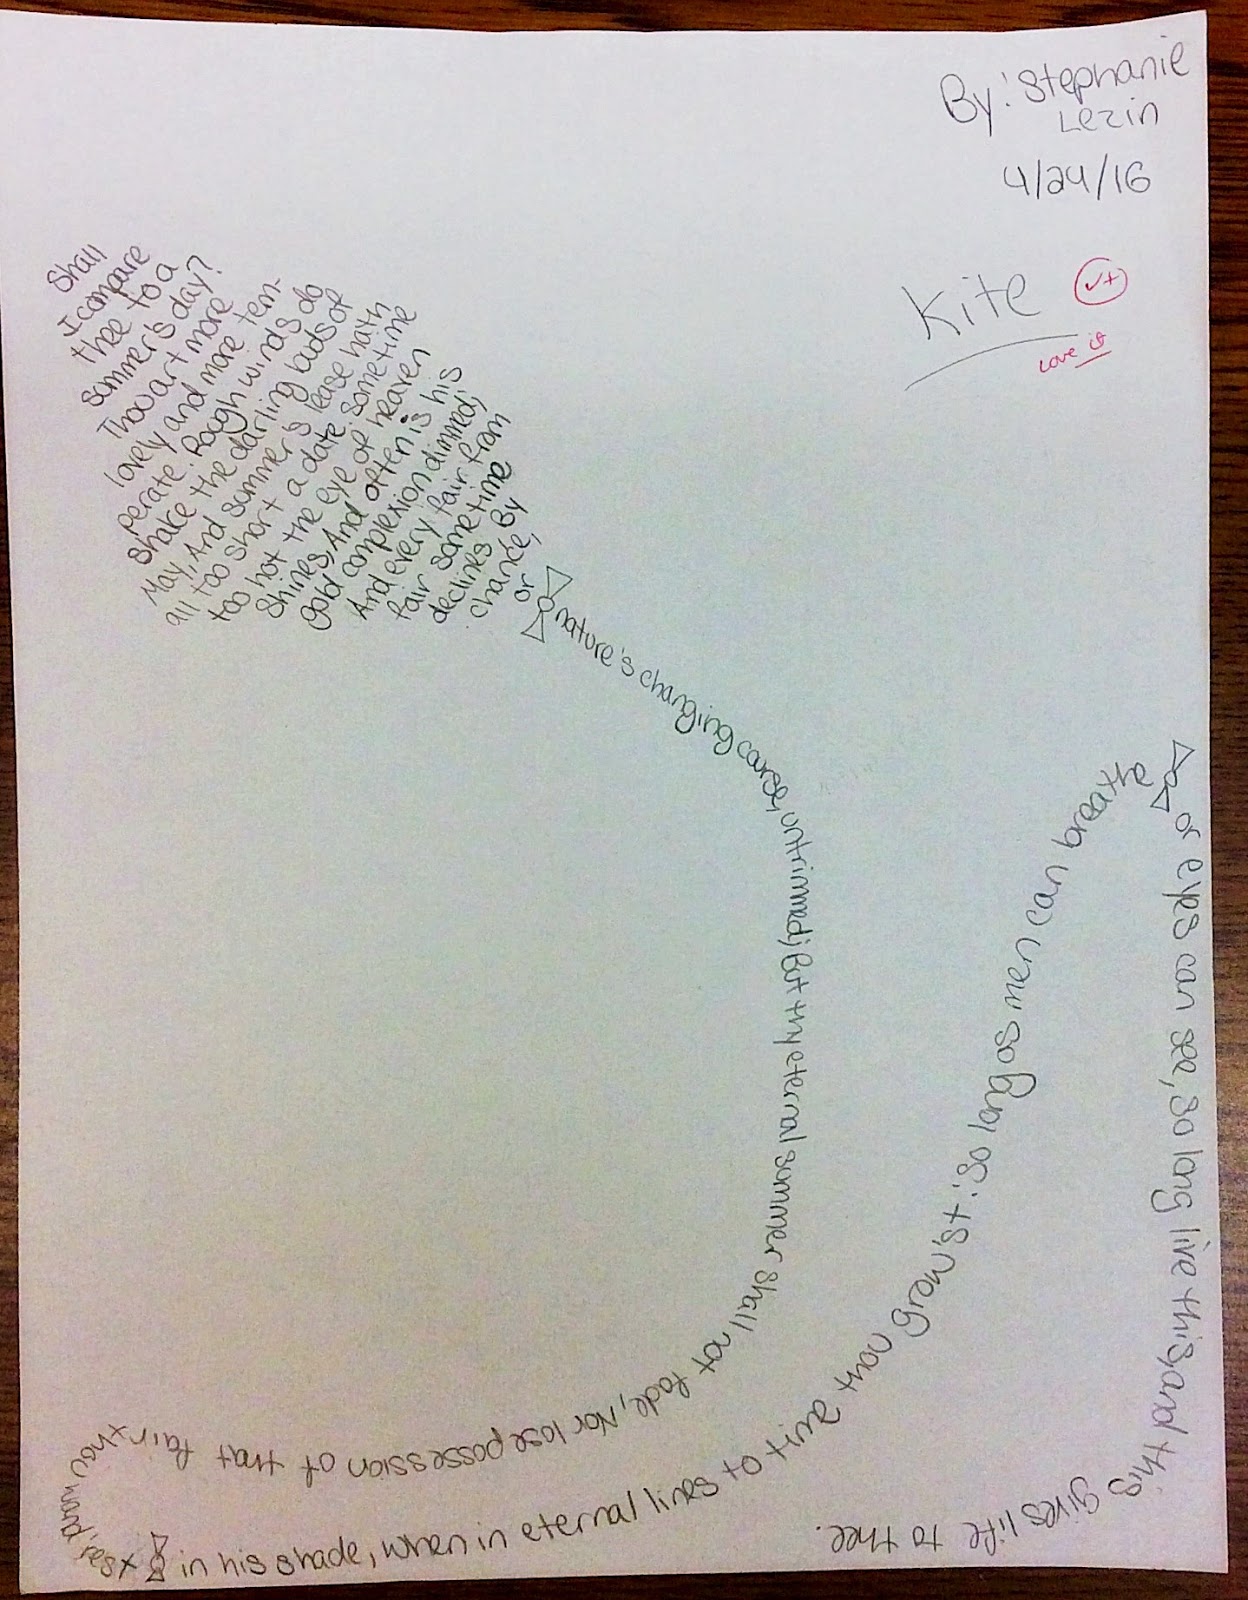 By: Stephanie
Lezin
4/24/16
Kite
✓+
Love it
Shall
I compare
thee to a
summer's day?
Thou art more
lovely and more tem-
perate. Rough winds do
shake the darling buds of
May, And summer's lease hath
all too short a date. Sometime
too hot the eye of heaven
shines, And often is his
gold complexion dimmed;
And every fair from
fair sometime
declines, By
chance,
or
nature's changing corse, untrimmed; But thy eternal summer shall not fade, Nor lose possession of that fair thou
in his shade, when in eternal lines thou grow'st: So long as men can breathe
or eyes can see, So long live this, and this gives life to thee.